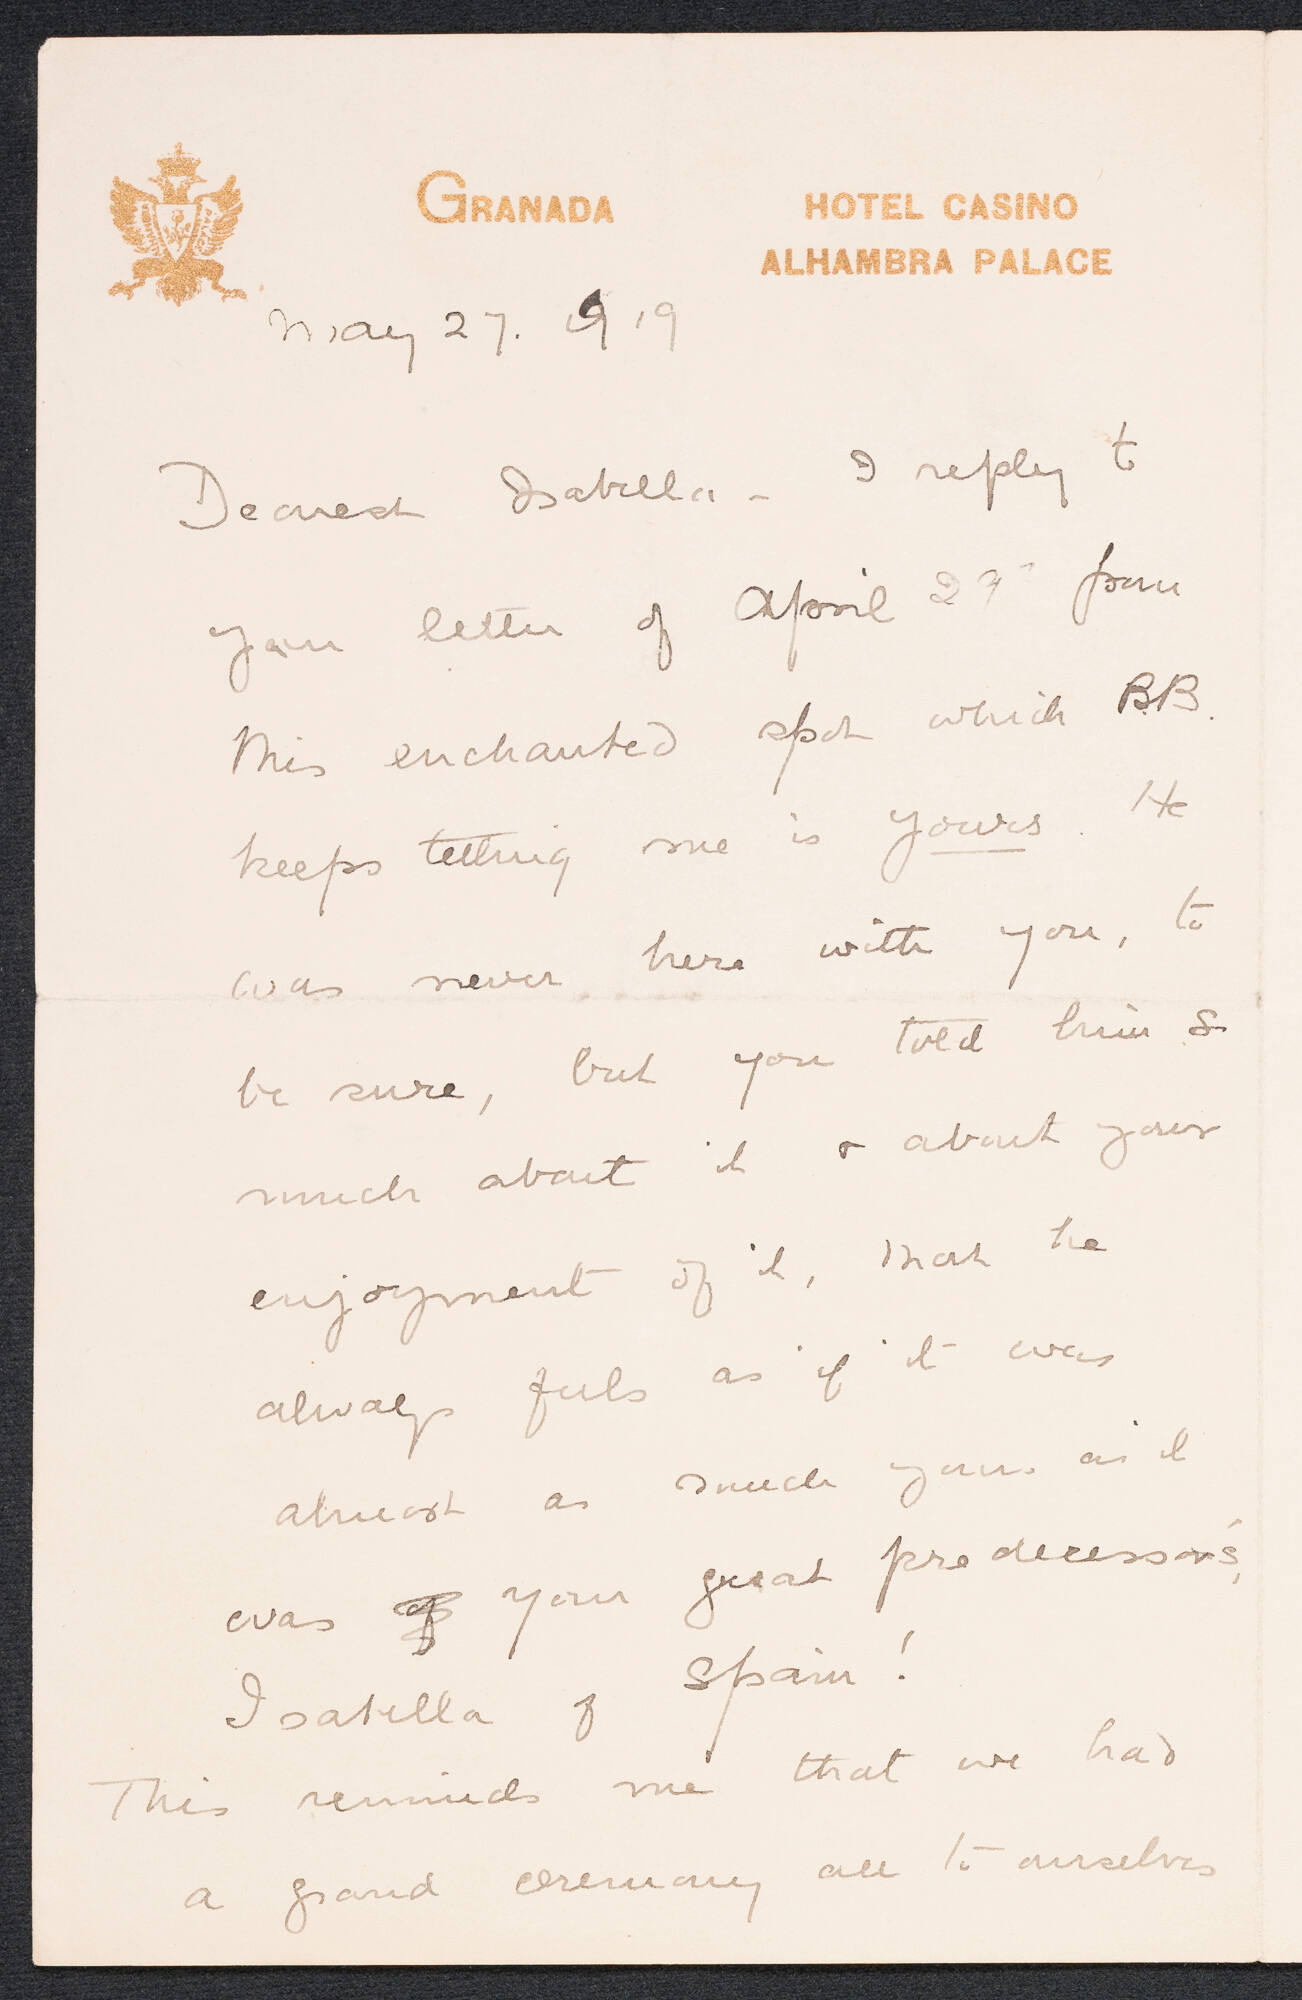 GRANADA
HOTEL CASINO
ALHAMBRA PALACE
May 27. 1919
Dearest Isabella - I reply to
your letter of April 27 from
this enchanted spot which B.B.
keeps telling me is yours. He
was never here with you, to
be sure, but you told him so
much about it & about your
enjoyment of it, that he
always feels as if it was
almost as much yours as it
was your great predecessor's,
Isabella of Spain!
This reminds me that we had
a grand ceremony all to ourselves